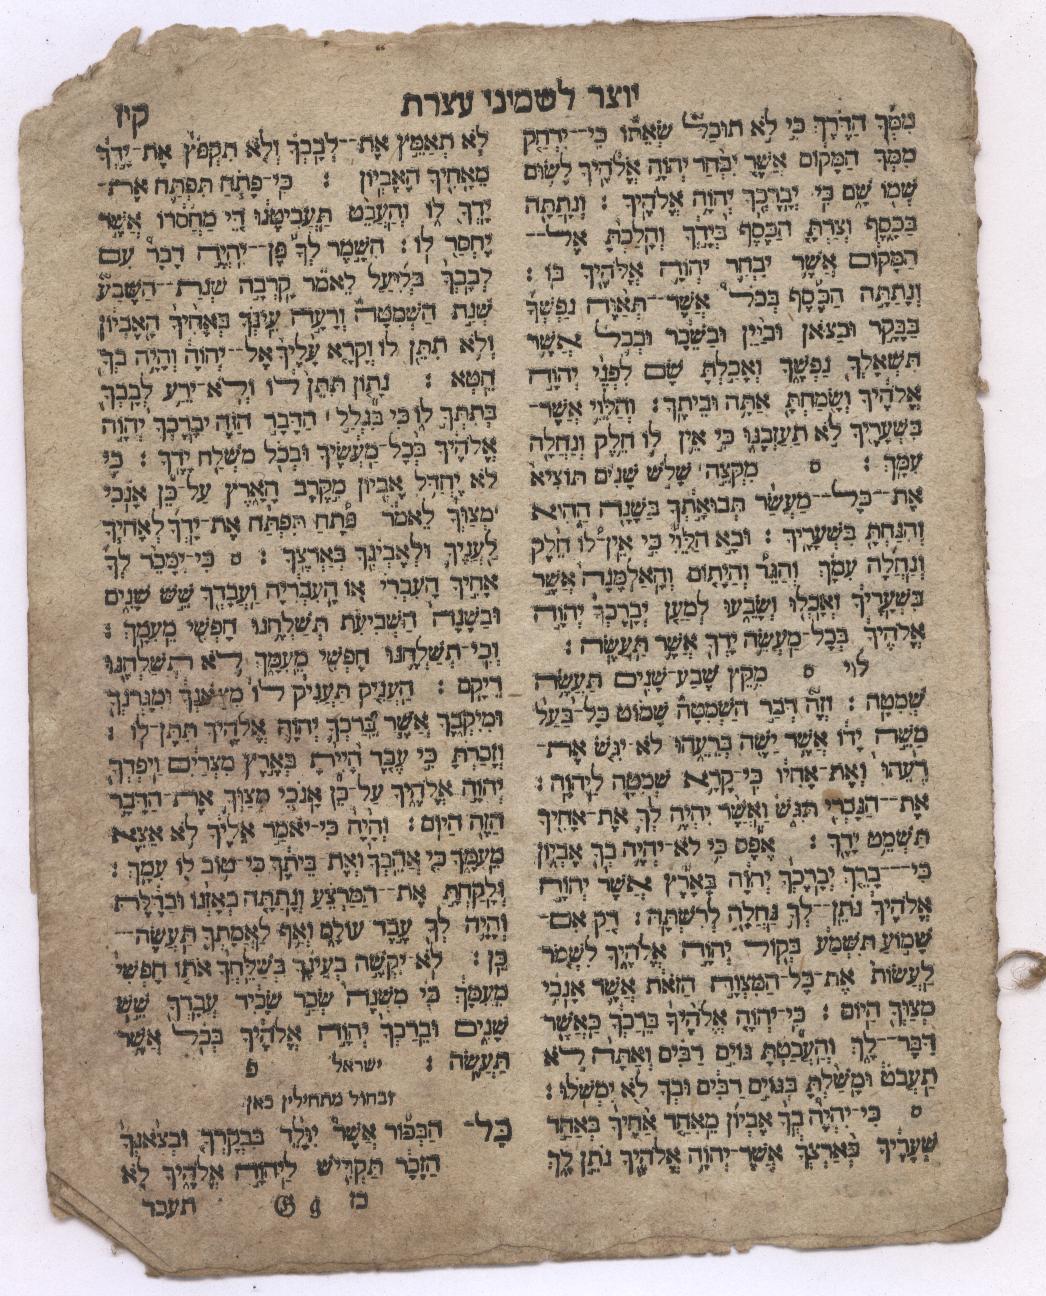 יוצר לשמיני עצרת
קיז
מִמְּךָ הַדֶּרֶךְ כִּי לֹא תוּכַל שְׂאֵתוֹ כִּי־יִרְחַק
מִמְּךָ הַמָּקוֹם אֲשֶׁר יִבְחַר יְהוָה אֱלֹהֶיךָ לָשׂוּם
שְׁמוֹ שָׁם כִּי יְבָרֶכְךָ יְהוָה אֱלֹהֶיךָ : וְנָתַתָּה
בַּכָּסֶף וְצַרְתָּ הַכֶּסֶף בְּיָדְךָ וְהָלַכְתָּ אֶל־
הַמָּקוֹם אֲשֶׁר יִבְחַר יְהוָה אֱלֹהֶיךָ בּוֹ :
וְנָתַתָּה הַכֶּסֶף בְּכֹל אֲשֶׁר־תְּאַוֶּה נַפְשְׁךָ
בַּבָּקָר וּבַצֹּאן וּבַיַּיִן וּבַשֵּׁכָר וּבְכֹל אֲשֶׁר
תִּשְׁאָלְךָ נַפְשֶׁךָ וְאָכַלְתָּ שָּׁם לִפְנֵי יְהוָה
אֱלֹהֶיךָ וְשָׂמַחְתָּ אַתָּה וּבֵיתֶךָ : וְהַלֵּוִי אֲשֶׁר־
בִּשְׁעָרֶיךָ לֹא תַעַזְבֶנּוּ כִּי אֵין לוֹ חֵלֶק וְנַחֲלָה
עִמָּךְ : ס מִקְצֵה שָׁלֹשׁ שָׁנִים תּוֹצִיא
אֶת־כָּל־מַעְשַׂר תְּבוּאָתְךָ בַּשָּׁנָה הַהִוא
וְהִנַּחְתָּ בִּשְׁעָרֶיךָ : וּבָא הַלֵּוִי כִּי אֵין־לוֹ חֵלֶק
וְנַחֲלָה עִמָּךְ וְהַגֵּר וְהַיָּתוֹם וְהָאַלְמָנָה אֲשֶׁר
בִּשְׁעָרֶיךָ וְאָכְלוּ וְשָׂבֵעוּ לְמַעַן יְבָרֶכְךָ יְהוָה
אֱלֹהֶיךָ בְּכָל־מַעֲשֵׂה יָדְךָ אֲשֶׁר תַּעֲשֶׂה :
לוי ס מִקֵּץ שֶׁבַע־שָׁנִים תַּעֲשֶׂה
שְׁמִטָּה : וְזֶה דְּבַר הַשְּׁמִטָּה שָׁמוֹט כָּל־בַּעַל
מַשֵּׁה יָדוֹ אֲשֶׁר יַשֶּׁה בְּרֵעֵהוּ לֹא־יִגֹּשׂ אֶת־
רֵעֵהוּ וְאֶת־אָחִיו כִּי־קָרָא שְׁמִטָּה לַיהוָה :
אֶת־הַנָּכְרִי תִּגֹּשׂ וַאֲשֶׁר יִהְיֶה לְךָ אֶת־אָחִיךָ
תַּשְׁמֵט יָדֶךָ : אֶפֶס כִּי לֹא יִהְיֶה בְּךָ אֶבְיוֹן
כִּי־בָרֵךְ יְבָרֶכְךָ יְהוָה בָּאָרֶץ אֲשֶׁר יְהוָה
אֱלֹהֶיךָ נֹתֵן־לְךָ נַחֲלָה לְרִשְׁתָּהּ : רַק אִם־
שָׁמוֹעַ תִּשְׁמַע בְּקוֹל יְהוָה אֱלֹהֶיךָ לִשְׁמֹר
לַעֲשׂוֹת אֶת־כָּל־הַמִּצְוָה הַזֹּאת אֲשֶׁר אָנֹכִי
מְצַוְּךָ הַיּוֹם : כִּי־יְהוָה אֱלֹהֶיךָ בֵּרַכְךָ כַּאֲשֶׁר
דִּבֶּר־לָךְ וְהַעֲבַטְתָּ גּוֹיִם רַבִּים וְאַתָּה לֹא
תַעֲבֹט וּמָשַׁלְתָּ בְּגוֹיִם רַבִּים וּבְךָ לֹא יִמְשֹׁלוּ :
ס כִּי־יִהְיֶה בְךָ אֶבְיוֹן מֵאַחַד אַחֶיךָ בְּאַחַד
שְׁעָרֶיךָ בְּאַרְצְךָ אֲשֶׁר־יְהוָה אֱלֹהֶיךָ נֹתֵן לָךְ
לֹא תְאַמֵּץ אֶת־לְבָבְךָ וְלֹא תִקְפֹּץ אֶת־יָדְךָ
מֵאָחִיךָ הָאֶבְיוֹן : כִּי־פָתֹחַ תִּפְתַּח אֶת־
יָדְךָ לוֹ וְהַעֲבֵט תַּעֲבִיטֶנּוּ דֵּי מַחְסֹרוֹ אֲשֶׁר
יֶחְסַר לוֹ : הִשָּׁמֶר לְךָ פֶּן־יִהְיֶה דָבָר עִם
לְבָבְךָ בְלִיַּעַל לֵאמֹר קָרְבָה שְׁנַת־הַשֶּׁבַע
שְׁנַת הַשְּׁמִטָּה וְרָעָה עֵינְךָ בְּאָחִיךָ הָאֶבְיוֹן
וְלֹא תִתֵּן לוֹ וְקָרָא עָלֶיךָ אֶל־יְהוָה וְהָיָה בְךָ
חֵטְא : נָתוֹן תִּתֵּן לוֹ וְלֹא־יֵרַע לְבָבְךָ
בְּתִתְּךָ לוֹ כִּי בִּגְלַל הַדָּבָר הַזֶּה יְבָרֶכְךָ יְהוָה
אֱלֹהֶיךָ בְּכָל־מַעֲשֶׂיךָ וּבְכֹל מִשְׁלַח יָדֶךָ : כִּי
לֹא יֶחְדַּל אֶבְיוֹן מִקֶּרֶב הָאָרֶץ עַל־כֵּן אָנֹכִי
מְצַוְּךָ לֵאמֹר פָּתֹחַ תִּפְתַּח אֶת־יָדְךָ לְאָחִיךָ
לַעֲנִיֶּךָ וּלְאֶבְיֹנְךָ בְּאַרְצֶךָ : ס כִּי־יִמָּכֵר לְךָ
אָחִיךָ הָעִבְרִי אוֹ הָעִבְרִיָּה וַעֲבָדְךָ שֵׁשׁ שָׁנִים
וּבַשָּׁנָה הַשְּׁבִיעִת תְּשַׁלְּחֶנּוּ חָפְשִׁי מֵעִמָּךְ :
וְכִי־תְשַׁלְּחֶנּוּ חָפְשִׁי מֵעִמָּךְ לֹא תְשַׁלְּחֶנּוּ
רֵיקָם : הַעֲנֵיק תַּעֲנִיק לוֹ מִצֹּאנְךָ וּמִגָּרְנְךָ
וּמִיִּקְבֶךָ אֲשֶׁר בֵּרַכְךָ יְהוָה אֱלֹהֶיךָ תִּתֶּן־לוֹ :
וְזָכַרְתָּ כִּי עֶבֶד הָיִיתָ בְּאֶרֶץ מִצְרַיִם וַיִּפְדְּךָ
יְהוָה אֱלֹהֶיךָ עַל־כֵּן אָנֹכִי מְצַוְּךָ אֶת־הַדָּבָר
הַזֶּה הַיּוֹם : וְהָיָה כִּי־יֹאמַר אֵלֶיךָ לֹא אֵצֵא
מֵעִמָּךְ כִּי אֲהֵבְךָ וְאֶת בֵּיתֶךָ כִּי־טוֹב לוֹ עִמָּךְ :
וְלָקַחְתָּ אֶת־הַמַּרְצֵעַ וְנָתַתָּה בְאָזְנוֹ וּבַדֶּלֶת
וְהָיָה לְךָ עֶבֶד עוֹלָם וְאַף לַאֲמָתְךָ תַּעֲשֶׂה־
כֵּן : לֹא־יִקְשֶׁה בְעֵינֶךָ בְּשַׁלֵּחֲךָ אֹתוֹ חָפְשִׁי
מֵעִמָּךְ כִּי מִשְׁנֶה שְׂכַר שָׂכִיר עֲבָדְךָ שֵׁשׁ
שָׁנִים וּבֵרַכְךָ יְהוָה אֱלֹהֶיךָ בְּכֹל אֲשֶׁר
תַּעֲשֶׂה : ישראל פ
ובחול מתחילין כאן
כָּל־ הַבְּכוֹר אֲשֶׁר יִוָּלֵד בִּבְקָרְךָ וּבְצֹאנְךָ
הַזָּכָר תַּקְדִּישׁ לַיהוָה אֱלֹהֶיךָ לֹא
כז G g תעבד